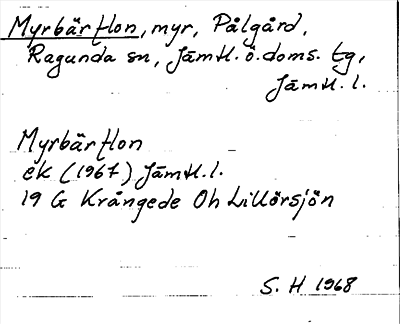 Myrbärflon, myr, Pålgård,
Ragunda sn, Jämtl. ö. doms. tg,
Jämtl. l.
Myrbärflon
ek (1967) Jämtl. l.
19 G Krångede Oh Lillörsjön
S. H 1968